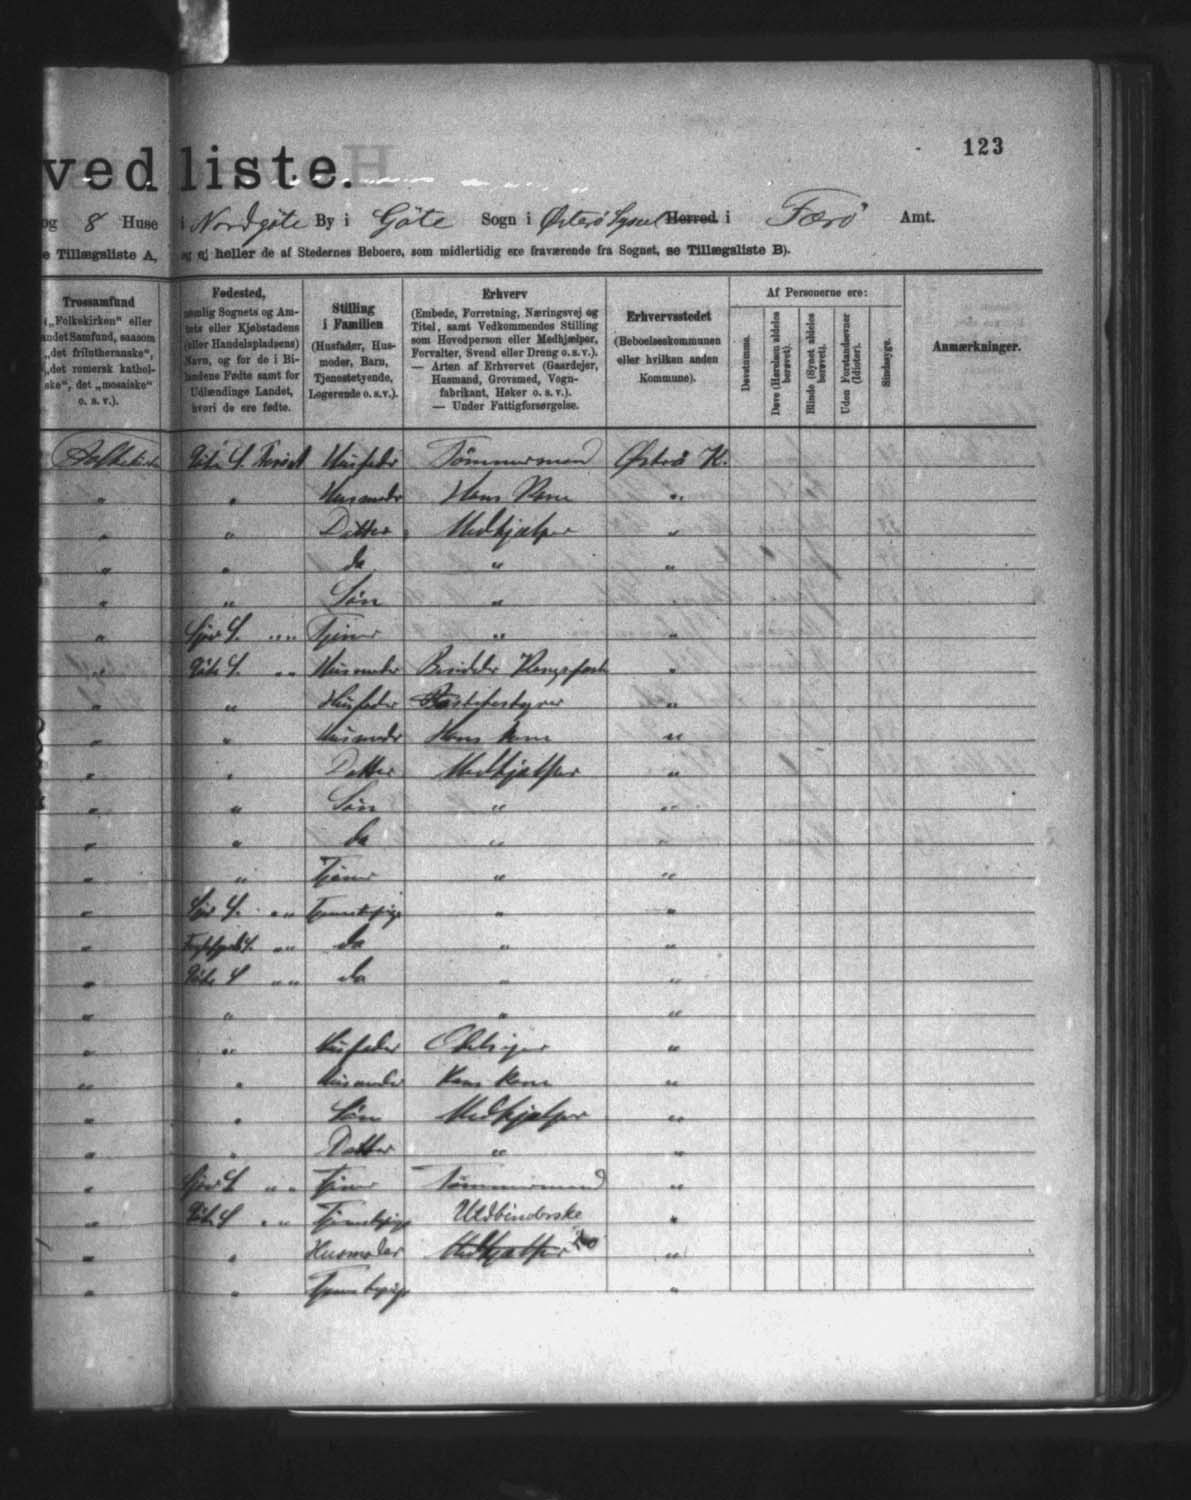 123
ved liste.
og 8 Huse i Nordgöte By i Göte Sogn i Østerö Syssel Herred i Færö Amt.
e Tillægsliste A, og ej heller de af Stedernes Beboere, som midlertidig ere fraværende fra Sognet, se Tillægsliste B).
Trossamfund
(i „Folkekirken“ eller
andet Samfund, saasom
„det frilutheranske“,
„det romersk kathol-
ske“, det „mosaiske“
o. s. v.).
Fødested,
nemlig Sognets og Am-
tets eller Kjøbstadens
(eller Handelspladsens)
Navn, og for de i Bi-
landene Fødte samt for
Udlændinge Landet,
hvori de ere fødte.
Stilling
i Familien
(Husfader, Hus-
moder, Barn,
Tjenestetyende,
Logerende o. s. v.).
Erhverv
(Embede, Forretning, Næringsvej og
Titel, samt Vedkommendes Stilling
som Hovedperson eller Medhjælper,
Forvalter, Svend eller Dreng o. s. v.).
— Arten af Erhvervet (Gaardejer,
Husmand, Grovsmed, Vogn-
fabrikant, Høker o. s. v.).
— Under Fattigforsørgelse.
Erhvervsstedet
(Beboelseskommunen
eller hvilken anden
Kommune).
Af Personerne ere:
Døvstumme.
Døve (Hørelsen aldeles
berøvet).
Blinde (Synet aldeles
berøvet).
Uden Forstandsevner
(Idioter).
Sindssyge.
Anmærkninger.
Folkekirke Göte S. Husfader Tömmermand Østerö K.
" " Husmoder Hans Kone "
" " Datter Medhjælper "
" " do " "
" " Sön "
" S. " " Tjener " "
" Göte S. " " Husmoder "
" " Husfader "
" " Husmoder Hans Kone "
" " Datter Medhjælper "
" " Sön " "
" " do " "
" " Tjener " "
" S. " " Tjenestepige " "
" S. " " do " "
" Göte S " " do " "
" " " "
" " Husfader "
" " Husmoder Hans Kone "
" " Sön Medhjælper "
" " Datter " "
" S " " Tjener Tömmermand "
" Göte S " " Tjenestepige Uldbinderske "
" " Husmoder Medhjælper do "
" " Tjenestepige "